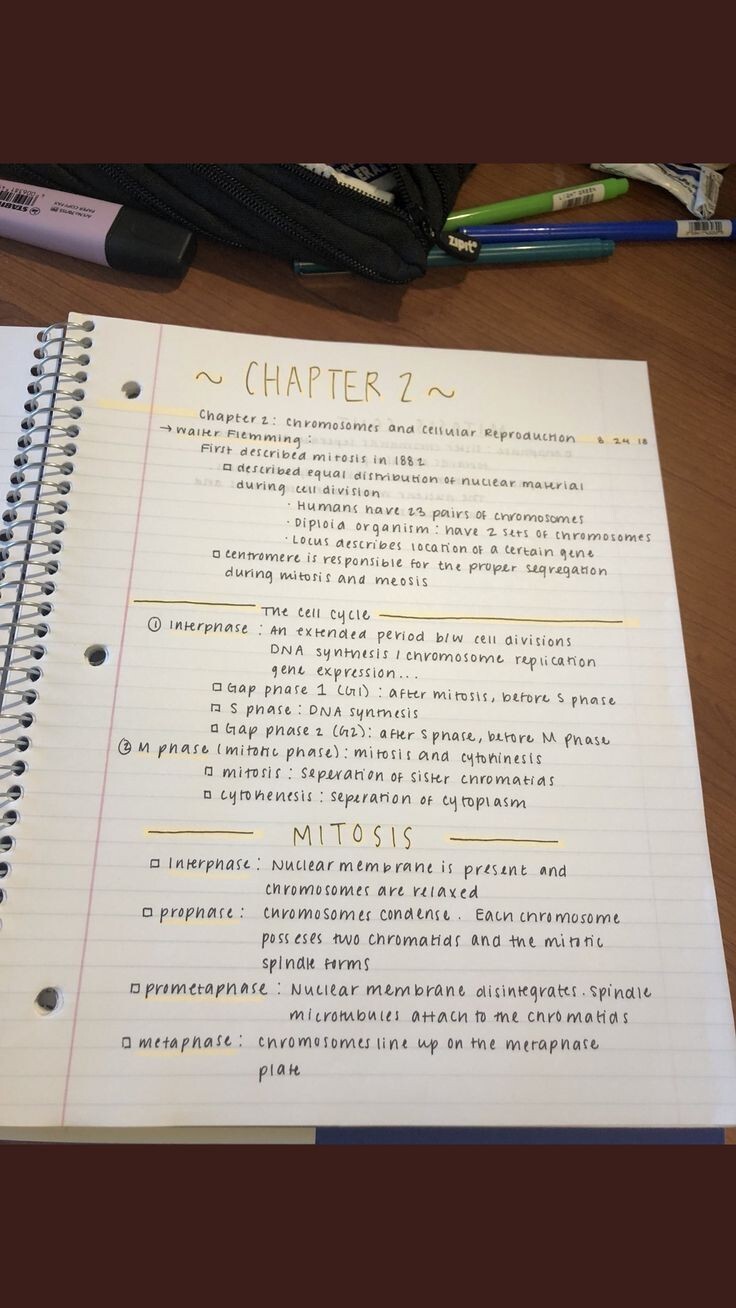 LIGHT GREEN
zipit
~ CHAPTER 2 ~
Chapter 2: Chromosomes and Cellular Reproduction 8 24 18
→ Walter Flemming:
First described mitosis in 1882
□ described equal distribution of nuclear material
during cell division
· Humans have 23 pairs of chromosomes
· Diploid organism: have 2 sets of chromosomes
· Locus describes location of a certain gene
□ centromere is responsible for the proper segregation
during mitosis and meosis
The cell cycle
① Interphase: An extended period b/w cell divisions
DNA synthesis / chromosome replication
gene expression...
□ Gap phase 1 (G1): after mitosis, before S phase
□ S phase: DNA synthesis
□ Gap phase 2 (G2): after S phase, before M phase
② M phase (mitotic phase): mitosis and cytokinesis
□ mitosis: seperation of sister chromatids
□ cytokenesis: seperation of cytoplasm
MITOSIS
□ Interphase: Nuclear membrane is present and
chromosomes are relaxed
□ prophase: chromosomes condense. Each chromosome
posseses two chromatids and the mitotic
spindle forms
□ prometaphase: Nuclear membrane disintegrates. Spindle
microtubules attach to the chromatids
□ metaphase: chromosomes line up on the metaphase
plate